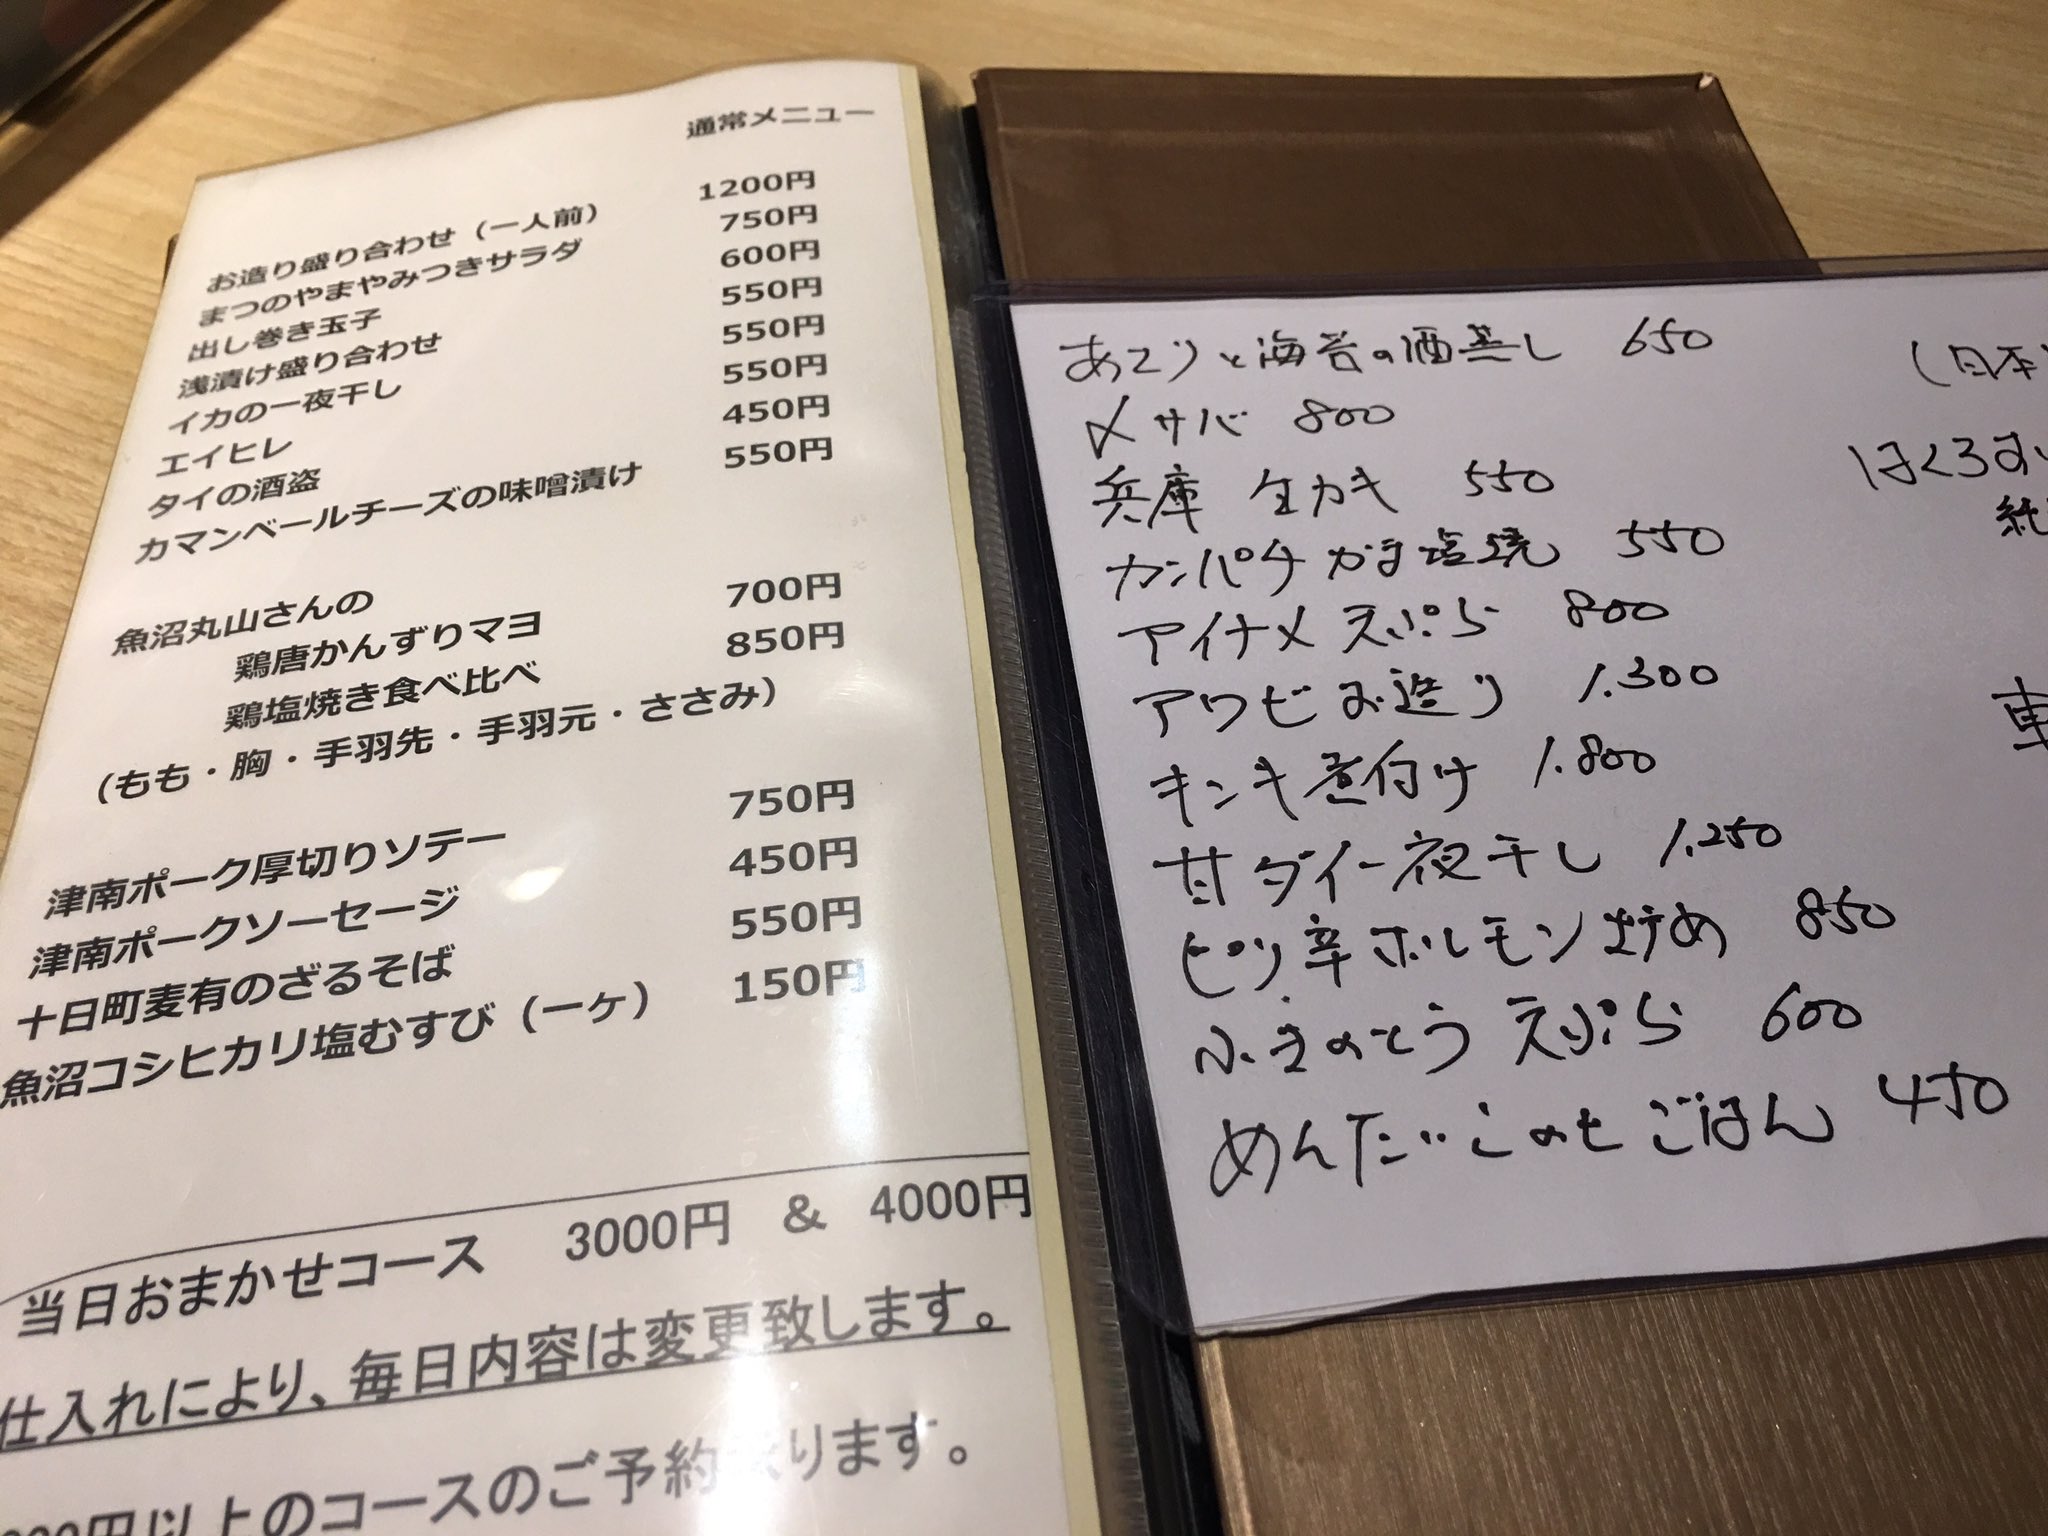 通常メニュー
お造り盛り合わせ（一人前） 1200円
まつのやまやみつきサラダ 750円
出し巻き玉子 600円
浅漬け盛り合わせ 550円
イカの一夜干し 550円
エイヒレ 550円
タイの酒盗 450円
カマンベールチーズの味噌漬け 550円
魚沼丸山さんの
鶏唐かんずりマヨ 700円
鶏塩焼き食べ比べ 850円
（もも・胸・手羽先・手羽元・ささみ）
津南ポーク厚切りソテー 750円
津南ポークソーセージ 450円
十日町麦有のざるそば 550円
魚沼コシヒカリ塩むすび（一ヶ） 150円
当日おまかせコース 3000円 & 4000円
仕入れにより、毎日内容は変更致します。
00円以上のコースのご予約 ります。
あさりと海苔の酒蒸し 650
〆サバ 800
兵庫 生カキ 550
カンパチかま塩焼 550
アイナメ天ぷら 800
アワビお造り 1.300
キンキ煮付け 1.800
甘ダイ一夜干し 1.250
ピリ辛ホルモン炒め 850
ふきのとう天ぷら 600
めんたいこのせごはん 450
(日本
はくろすい
純